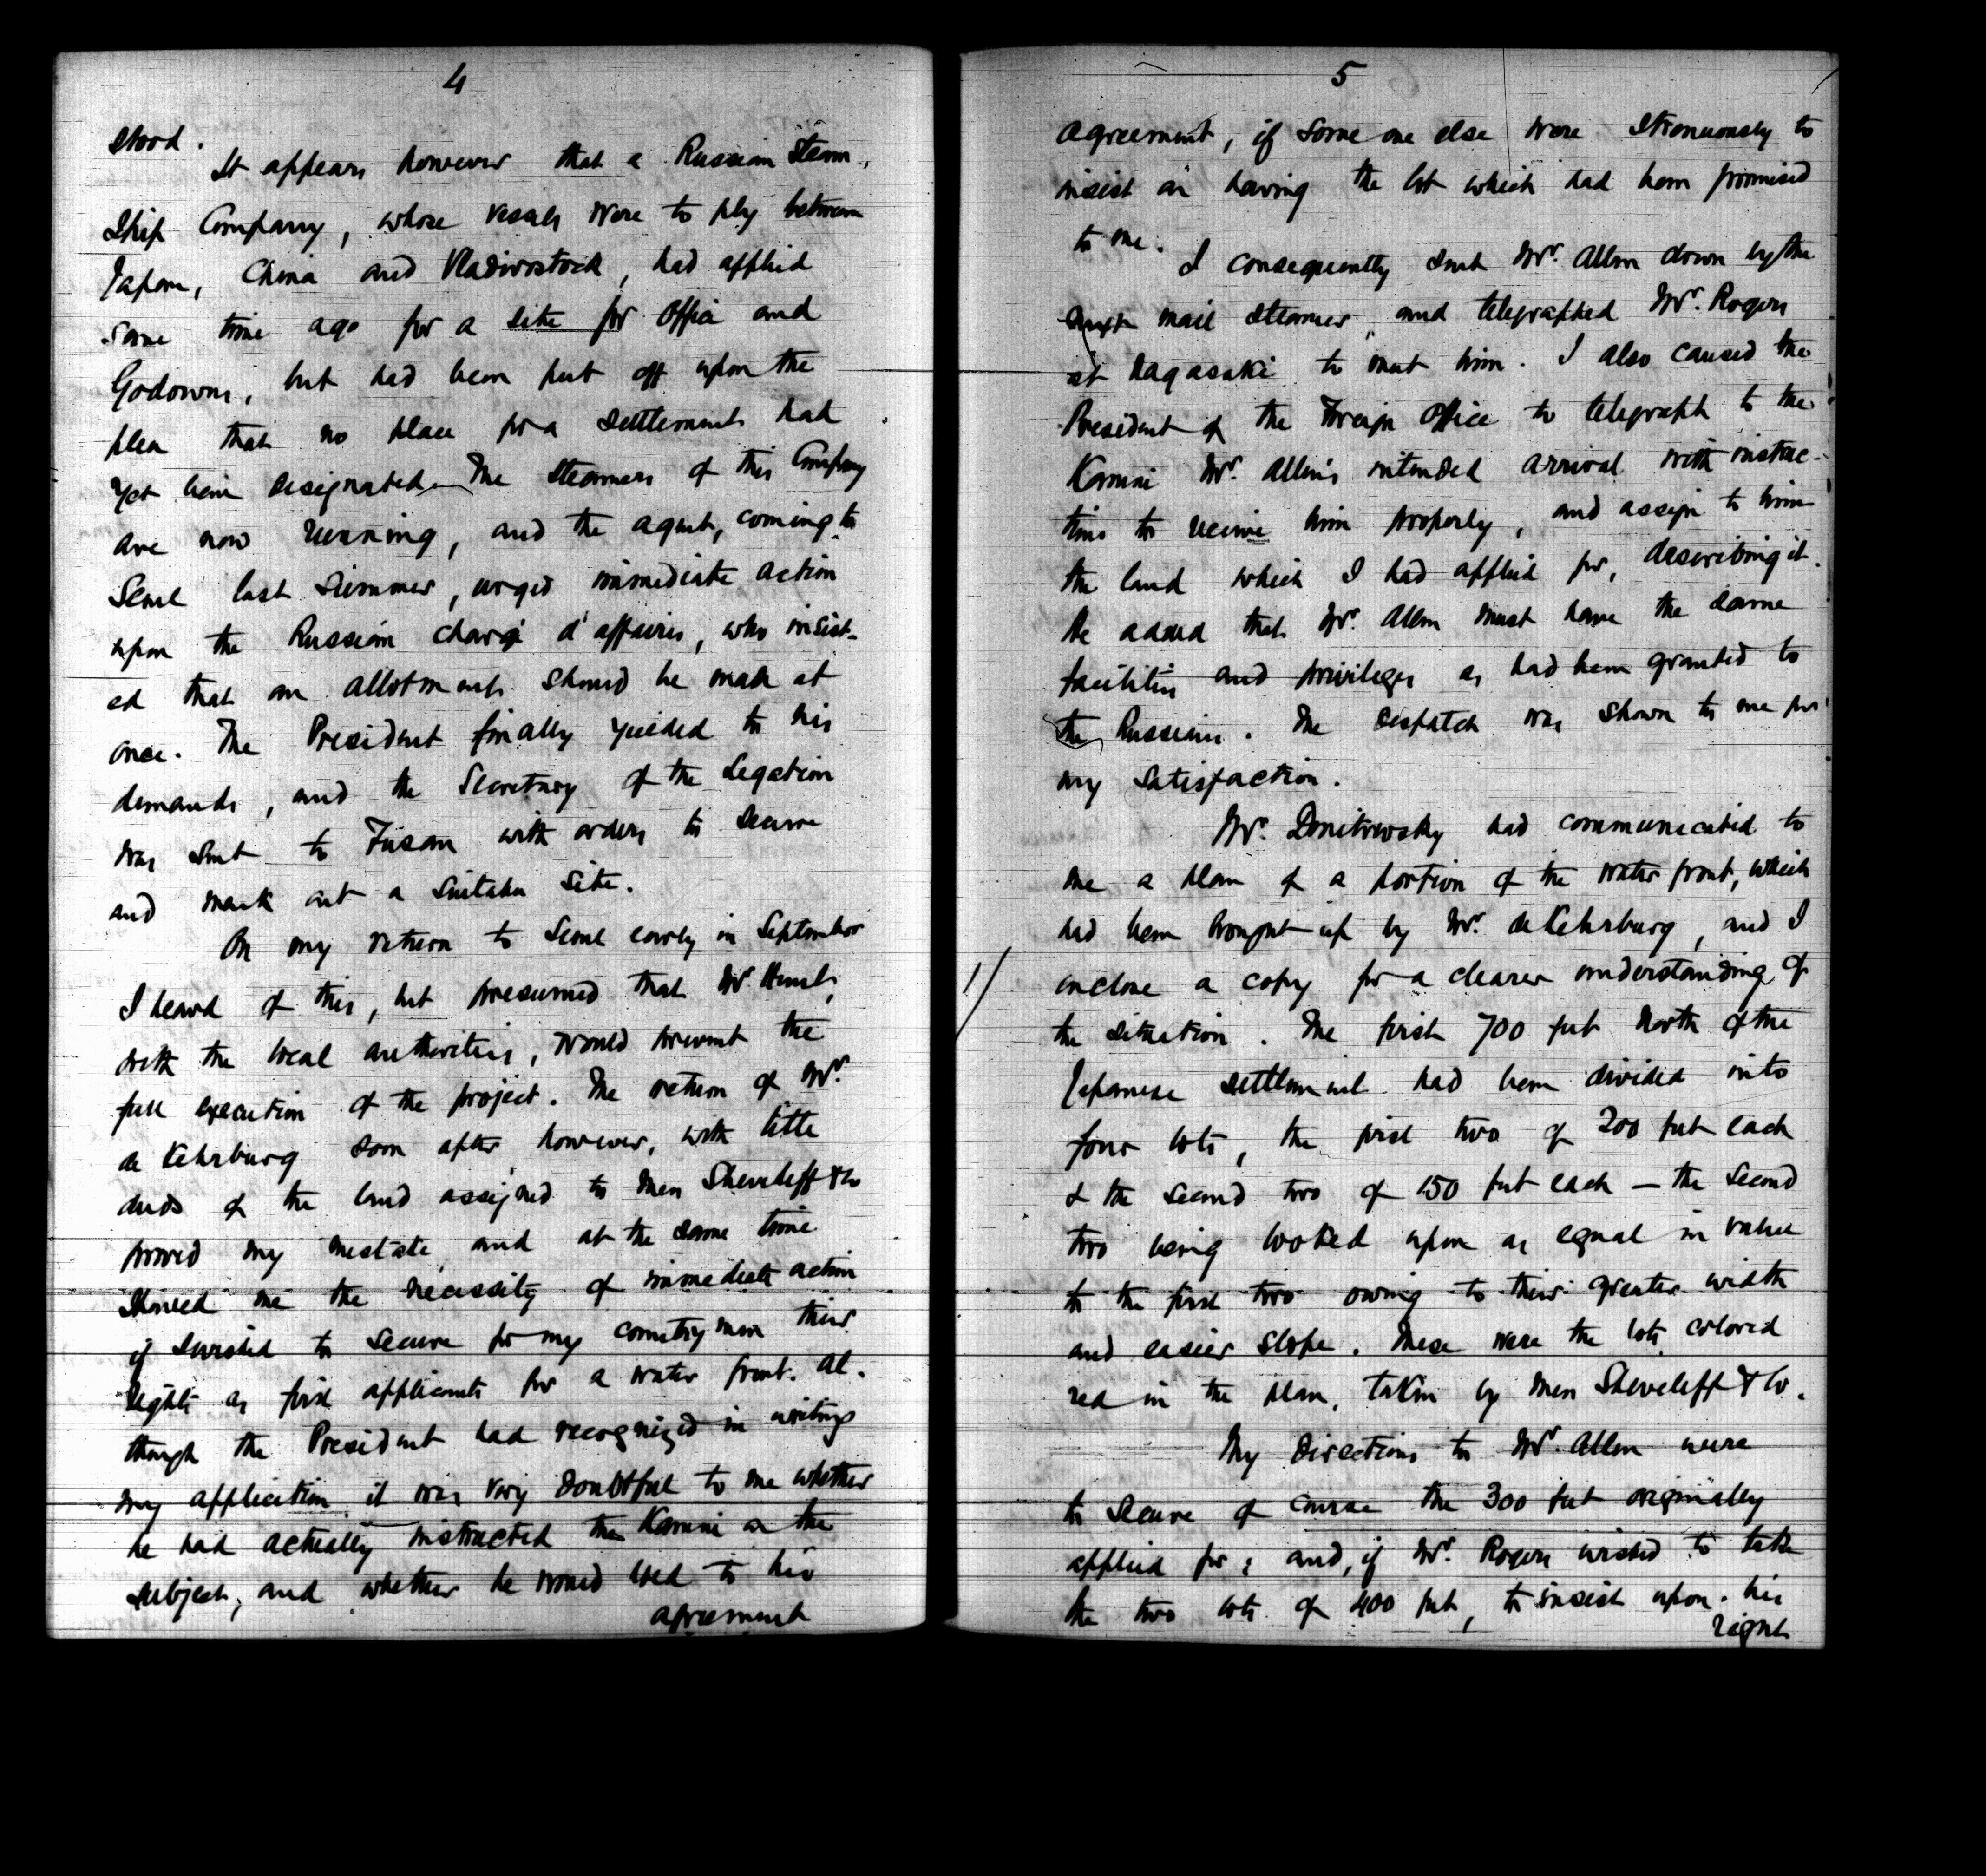 4
stood.
It appears however that a Russian Steam-
Ship Company, whose vessels were to ply between
Japan, China and Vladivostock, had applied
some time ago for a site for Office and
Godowns, but had been put off upon the
plea that no place for a Settlement had
yet been designated. The steamers of this Company
are now running, and the agent, coming to
Seoul last summer, urged immediate action
upon the Russian Chargé d'affaires, who insist-
ed that an allotment should be made at
once. The President finally yielded to his
demands, and the Secretary of the Legation
was sent to Fusan with orders to secure
and mark out a suitable site.
On my return to Seoul early in September
I heard of this, but presumed that Mr Hunt,
with the local authorities, would prevent the
full execution of the project. The return of Mr.
de Kehrburg soon after, however, with title
deeds of the land assigned to Mess Sheveleff & Co
proved my mistake, and at the same time
showed me the necessity of immediate action
if I wished to secure for my countrymen their
rights as first applicants for a water front. Al-
though the President had recognized in writing
my application it was very doubtful to me whether
he had actually instructed the Kamni on the
subject, and whether he would hold to his
agreement
5
agreement, if some one else were strenuously to
insist on having the lot which had been promised
to me.
I consequently sent Mr. Allen down by the
next mail steamer, and telegraphed Mr. Rogers
at Nagasaki to meet him. I also caused the
President of the Foreign Office to telegraph to the
Kamni Mr. Allen's intended arrival with instruc-
tions to receive him properly, and assign to him
the land which I had applied for, describing it.
He added that Mr. Allen must have the same
facilities and privileges as had been granted to
the Russians. The despatch was shown to me for
my satisfaction.
Mr. Dmitrevsky had communicated to
me a plan of a portion of the water front, which
had been brought up by Mr. de Kehrburg, and I
1/
enclose a copy for a clearer understanding of
the situation. The first 700 feet North of the
Japanese settlement had been divided into
four lots, the first two of 200 feet each
& the second two of 150 feet each — the second
two being looked upon as equal in value
to the first two owing to their greater width
and easier slope. These were the lots colored
red in the plan, taken by Mess Sheveleff & Co.
My directions to Mr. Allen were
to secure of course the 300 feet originally
applied for; and, if Mr. Rogers wished to take
the two lots of 400 feet, to insist upon his
right